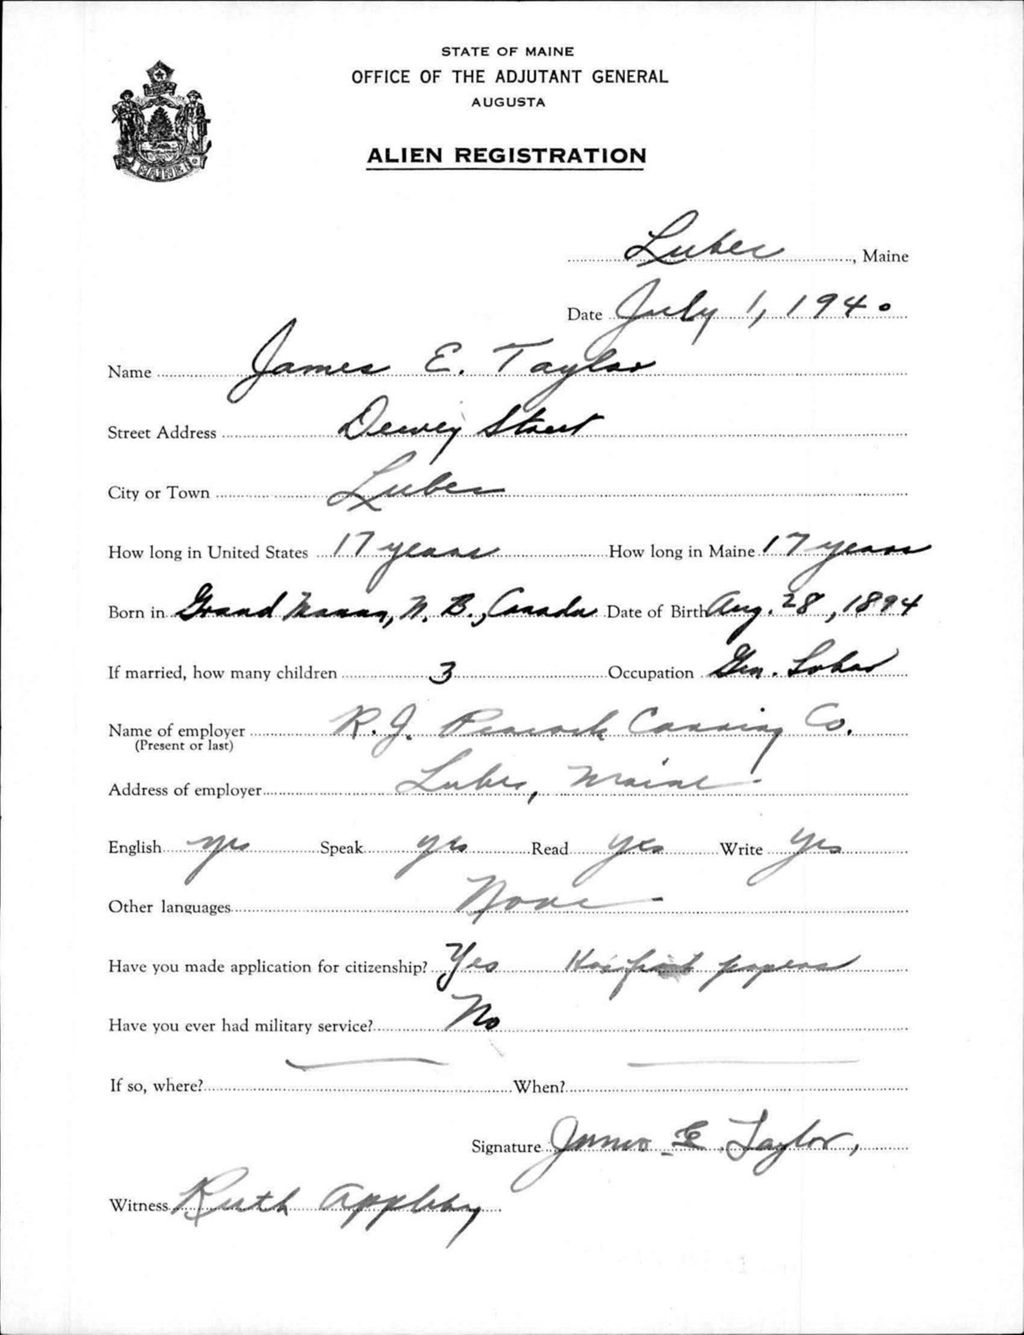 STATE OF MAINE
OFFICE OF THE ADJUTANT GENERAL
AUGUSTA
ALIEN REGISTRATION
MAINE
Lubec, Maine
Date July 1, 1940
Name James E. Taylor
Street Address Dewey Street
City or Town Lubec
How long in United States 17 years How long in Maine 17 years
Born in Grand Manan, N. B., Canada Date of Birth Aug. 28, 1894
If married, how many children 3 Occupation Gen. Labor
Name of employer R. J. Peacock Canning Co.
(Present or last)
Address of employer Lubec, Maine
English yes Speak yes Read yes Write yes
Other languages None
Have you made application for citizenship? Yes Has first papers
Have you ever had military service? No
If so, where? When?
Signature James E. Taylor,
Witness Ruth Appleby